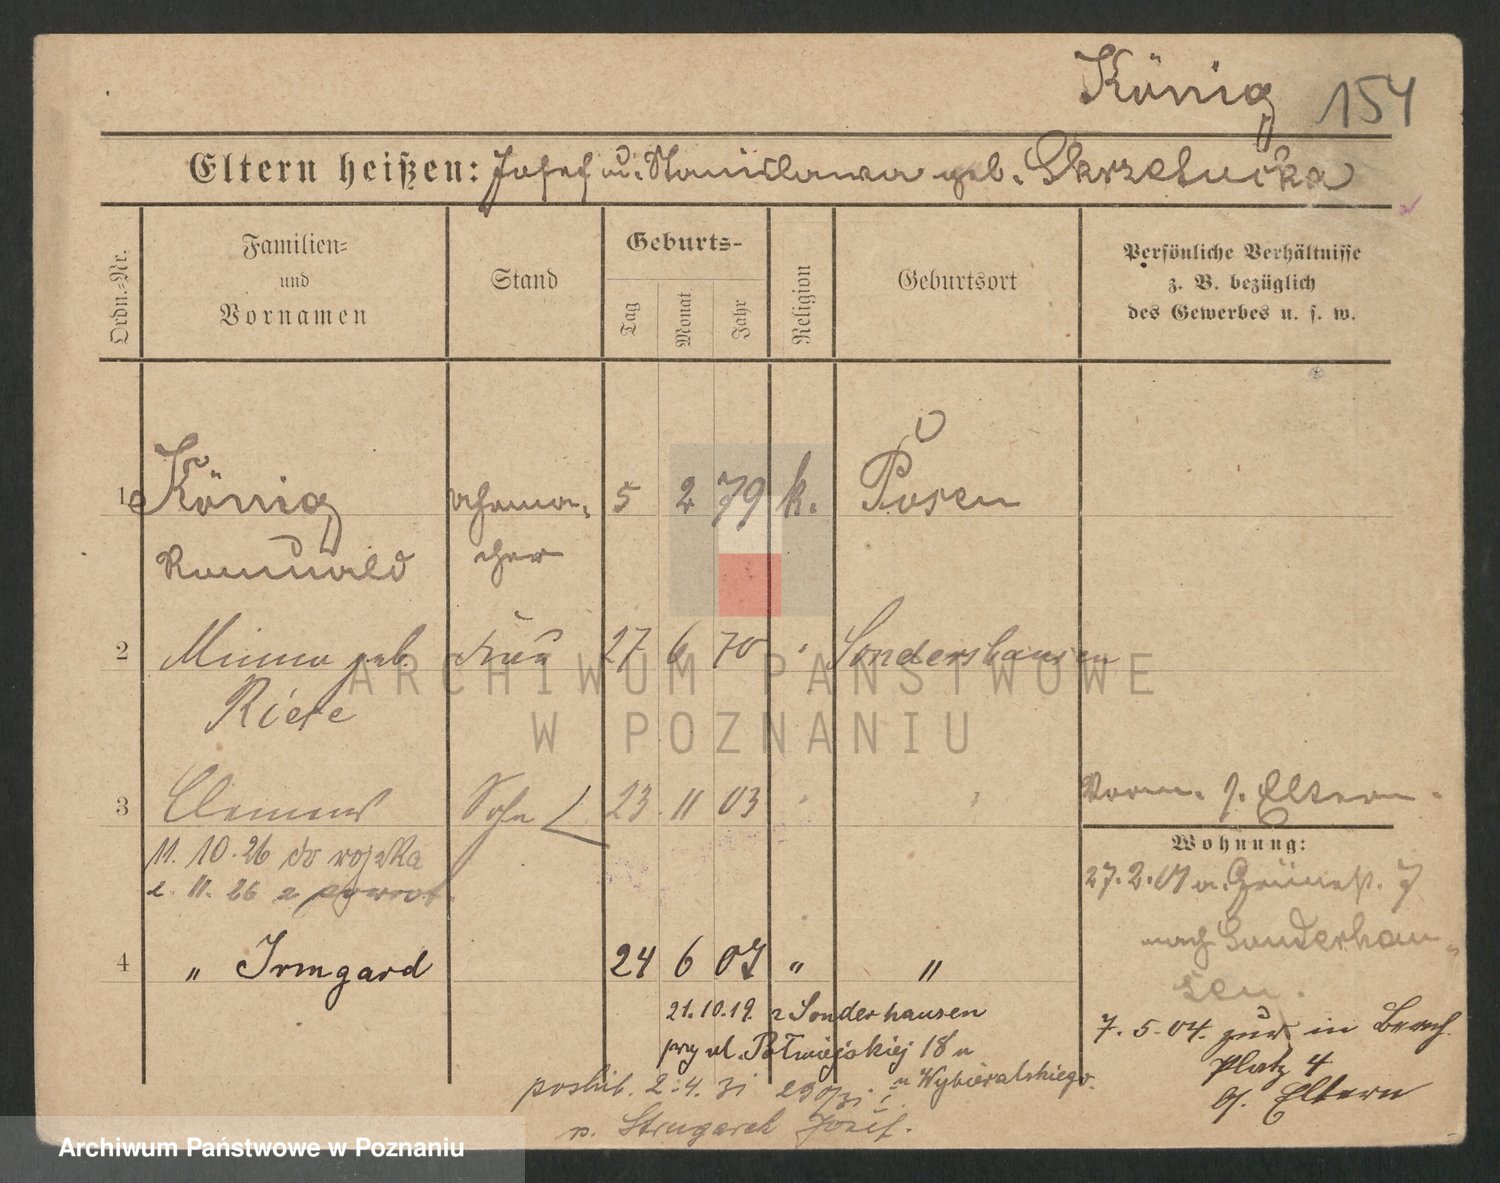 König 154
Eltern heißen: Josef u. Stanislawa geb. Skrzetucka
Ordn.-Nr.
Familien- und Vornamen
Stand
Geburts-
Tag
Monat
Jahr
Religion
Geburtsort
Persönliche Verhältnisse
z. B. bezüglich
des Gewerbes u. s. w.
1 König Uhrma- 5 2 79 k. Posen
Romuald cher
2 Minna geb. Frau 27 6 70 Sondershausen
Riese
3 Clemens Sohn 23 11 03
Vorm. s. Eltern.
11. 10. 26 do wojska
2. 11. 26 z powrot.
Wohnung:
27. 2. 07 a. Grünest. 7
nach Sonderhau-
sen.
4 " Irmgard 24 6 07 " "
21. 10. 19. z Sonderhausen
przy ul. Półwiejskiej 18 u
poślub. 2. 4. 31 u Wybieralskiego.
z. Strugarek Józef.
7. 5. 04. zur. in
Platz 4
b/. Eltern
ARCHIWUM PAŃSTWOWE
W POZNANIU
Archiwum Państwowe w Poznaniu